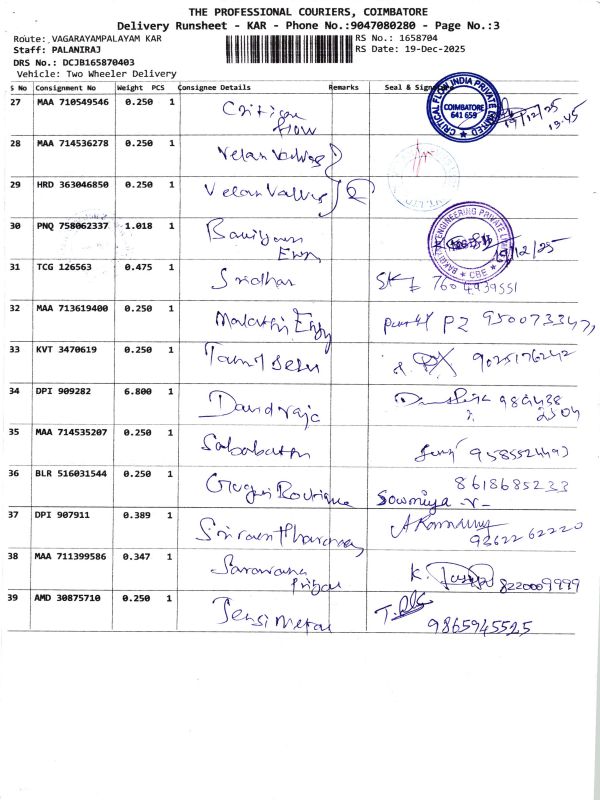 THE PROFESSIONAL COURIERS, COIMBATORE
Delivery Runsheet - KAR - Phone No.:9047080280 - Page No.:3
Route: VAGARAYAMPALAYAM KAR
RS No.: 1658704
Staff: PALANIRAJ
RS Date: 19-Dec-2025
DRS No.: DCJB165870403
Vehicle: Two Wheeler Delivery
S No Consignment No Weight PCS Consignee Details Remarks Seal & Signature
27 MAA 710549546 0.250 1 Critical flow CRITICAL FLOW INDIA PRIVATE LIMITED COIMBATORE 641 659 19/12/25
28 MAA 714536278 0.250 1 Velan Valves
29 HRD 363046850 0.250 1 Velan Valves
30 PNQ 758062337 1.018 1 Engg ENGINEERING PRIVATE CBE 19/12/25
31 TCG 126563 0.475 1 Sridhar 7604939551
32 MAA 713619400 0.250 1 Malathi Engg
33 KVT 3470619 0.250 1 Tamil Selvi 9025176242
34 DPI 909282 6.800 1
35 MAA 714535207 0.250 1
36 BLR 516031544 0.250 1 Boutique 8618685233
Sowmiya -V-
37 DPI 907911 0.389 1 9362262220
38 MAA 711399586 0.347 1 Saravana K. 8220009999
39 AMD 30875710 0.250 1 Jensi Metal T. 9865945525